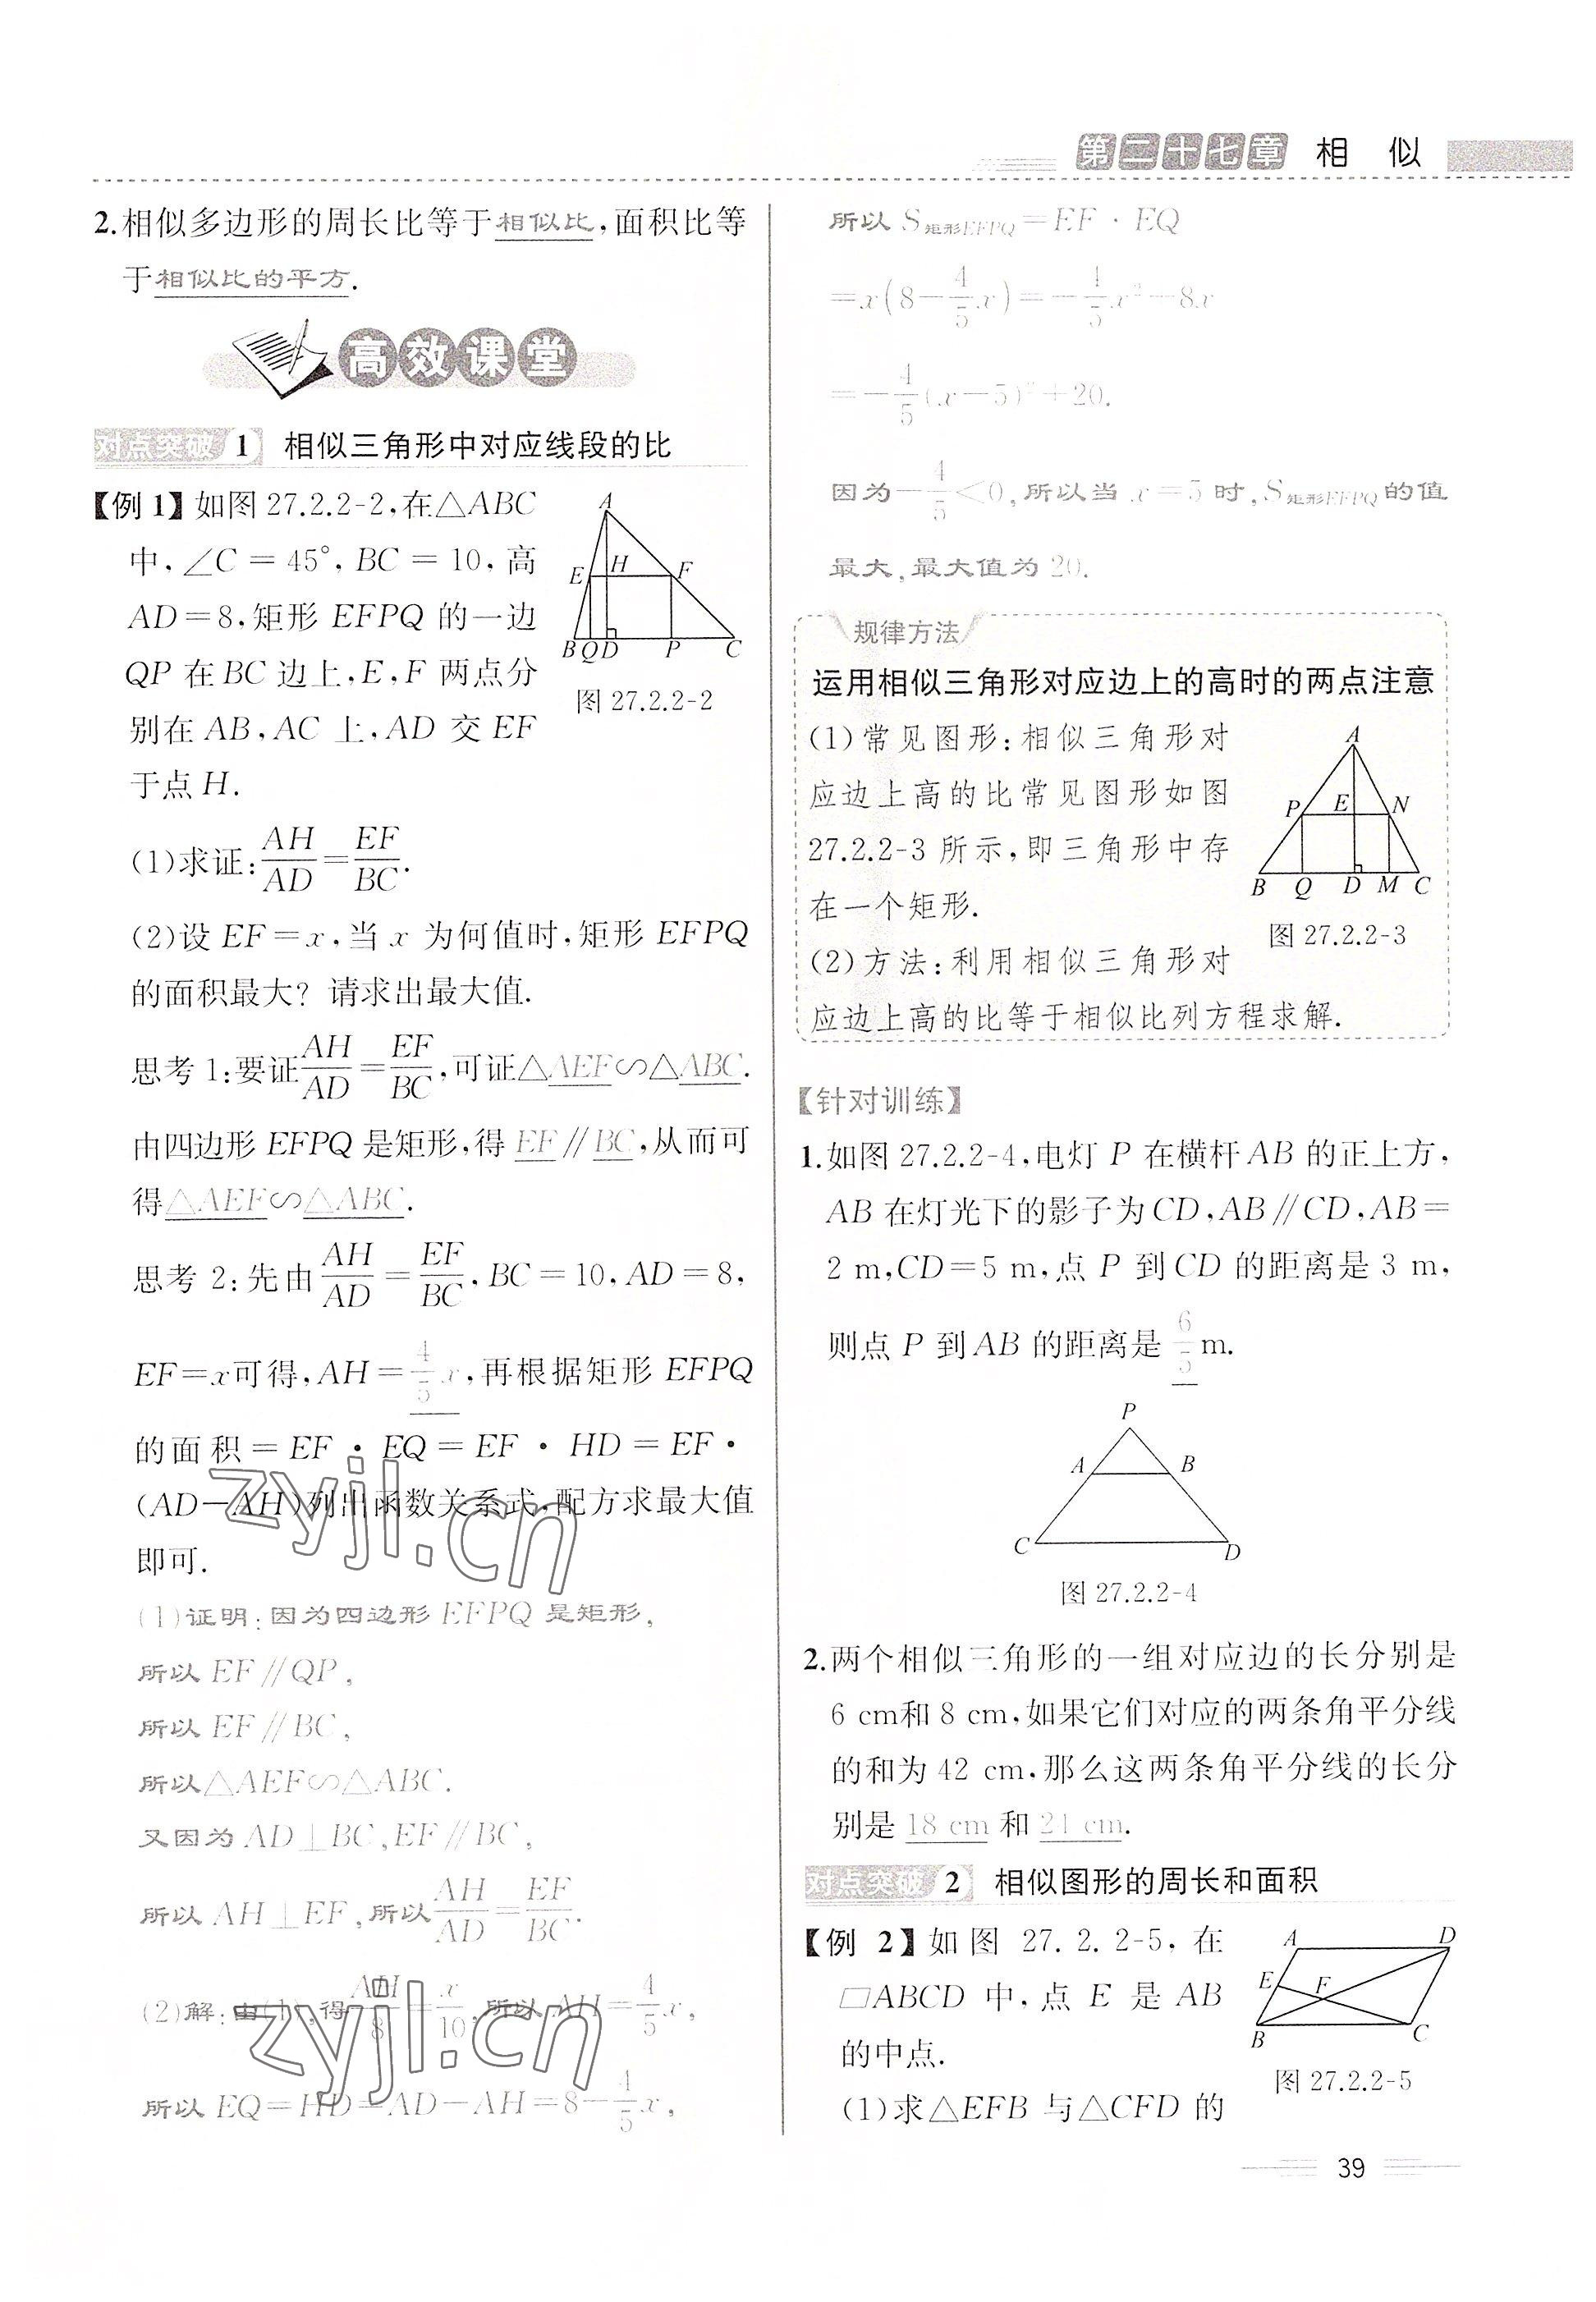 第二十七章 相 似
2.相似多边形的周长比等于相似比,面积比等
于相似比的平方.
高效课堂
对点突破 1 相似三角形中对应线段的比
【例1】如图27.2.2-2,在△ABC
中,∠C=45°,BC=10,高
AD=8,矩形EFPQ的一边
QP在BC边上,E,F两点分
别在AB,AC上,AD交EF
于点H.
A
E H F
B Q D P C
图27.2.2-2
(1)求证:AH/AD=EF/BC.
(2)设EF=x,当x为何值时,矩形EFPQ
的面积最大? 请求出最大值.
思考1:要证AH/AD=EF/BC,可证△AEF∽△ABC.
由四边形EFPQ是矩形,得EF∥BC,从而可
得△AEF∽△ABC.
思考2:先由AH/AD=EF/BC,BC=10,AD=8,
EF=x可得,AH=4/5x,再根据矩形EFPQ
的面积=EF·EQ=EF·HD=EF·
(AD-AH)列出函数关系式,配方求最大值
即可.
(1)证明:因为四边形EFPQ是矩形,
所以EF∥QP,
所以EF∥BC,
所以△AEF∽△ABC.
又因为AD⊥BC,EF∥BC,
所以AH⊥EF,所以AH/AD=EF/BC.
(2)解:由(1),得AH/8=x/10,所以AH=4/5x,
所以EQ=HD=AD-AH=8-4/5x,
zyjl.cn
zyjl.cn
所以S矩形EFPQ=EF·EQ
=x(8-4/5x)=-4/5x²-8x
=-4/5(x-5)²+20.
因为-4/5<0,所以当x=5时,S矩形EFPQ的值
最大,最大值为20.
规律方法
运用相似三角形对应边上的高时的两点注意
(1)常见图形:相似三角形对
应边上高的比常见图形如图
27.2.2-3所示,即三角形中存
在一个矩形.
A
P E N
B Q D M C
图27.2.2-3
(2)方法:利用相似三角形对
应边上高的比等于相似比列方程求解.
【针对训练】
1.如图27.2.2-4,电灯P在横杆AB的正上方,
AB在灯光下的影子为CD,AB∥CD,AB=
2 m,CD=5 m,点P到CD的距离是3 m,
则点P到AB的距离是6/5m.
P
A B
C D
图27.2.2-4
2.两个相似三角形的一组对应边的长分别是
6 cm和8 cm,如果它们对应的两条角平分线
的和为42 cm,那么这两条角平分线的长分
别是18 cm和24 cm.
对点突破 2 相似图形的周长和面积
【例2】如图27.2.2-5,在
▱ABCD中,点E是AB
的中点.
(1)求△EFB与△CFD的
A D
E F
B C
图27.2.2-5
39